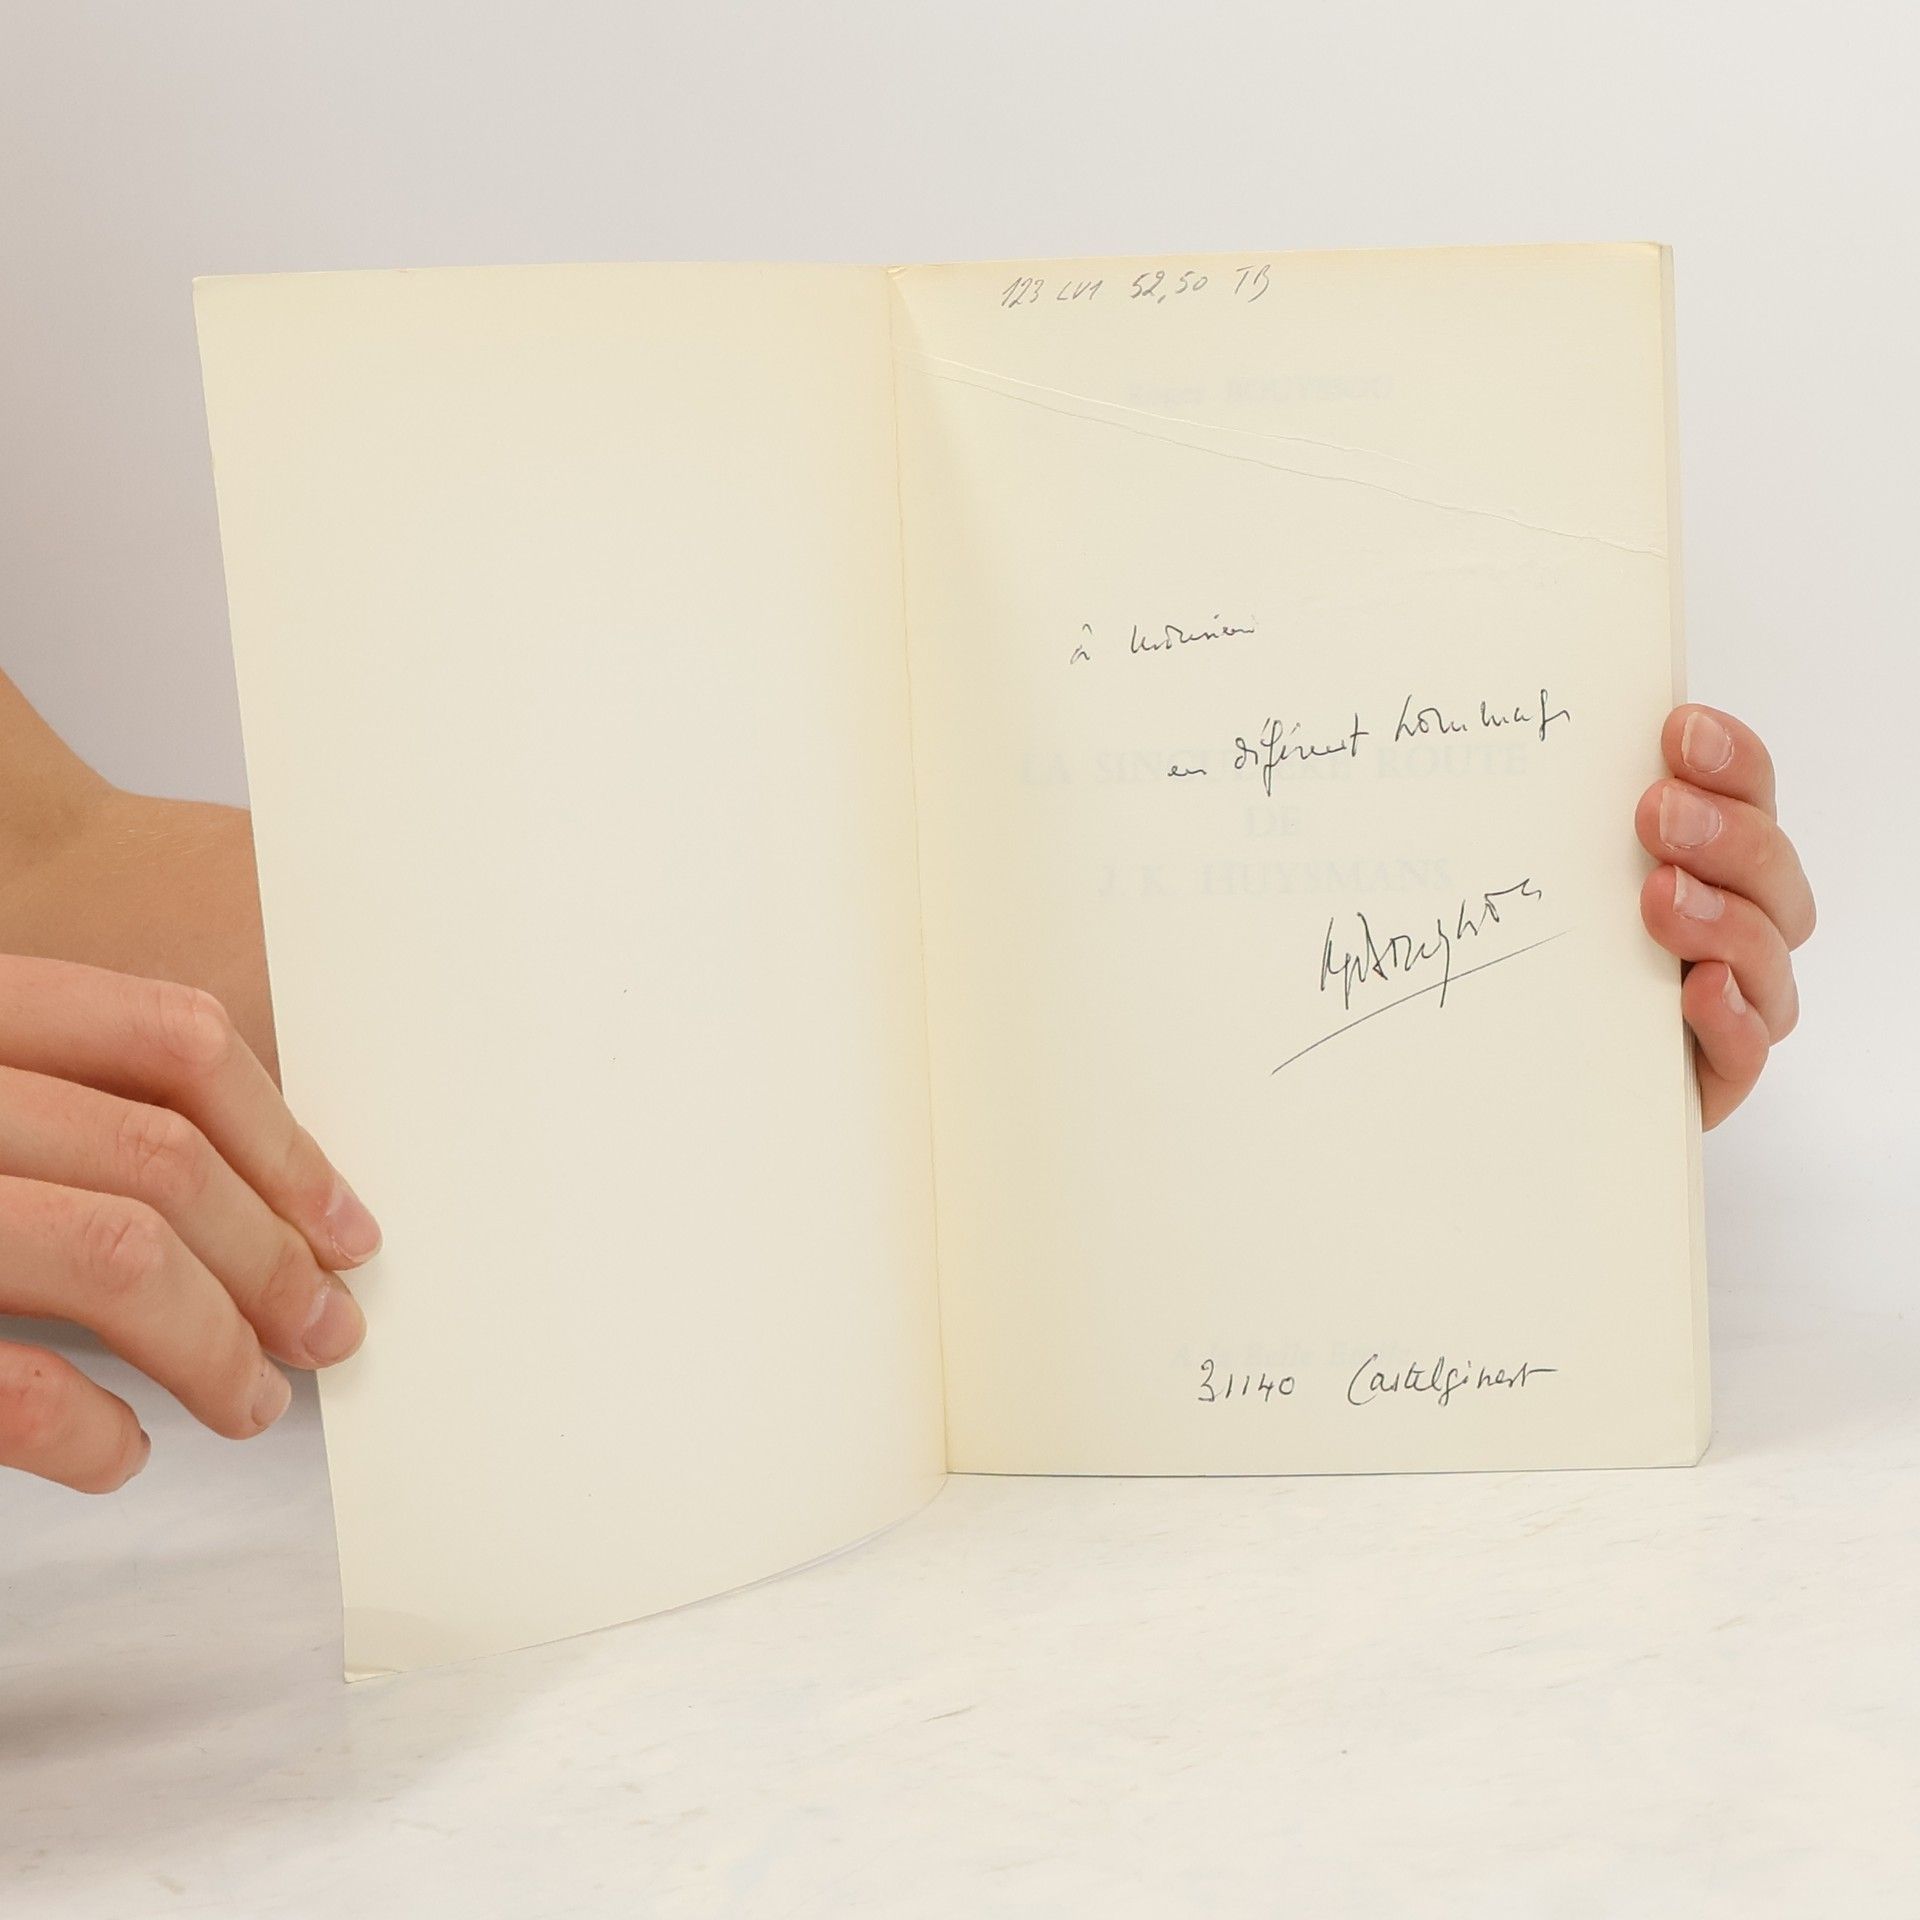 123 LV1 52,50 TB
Roger BOUYSSOU
à Monsieur
en déférent hommage
LA SINGULIÈRE ROUTE
DE
J. K. HUYSMANS
A la Belle
31140 Castelginest